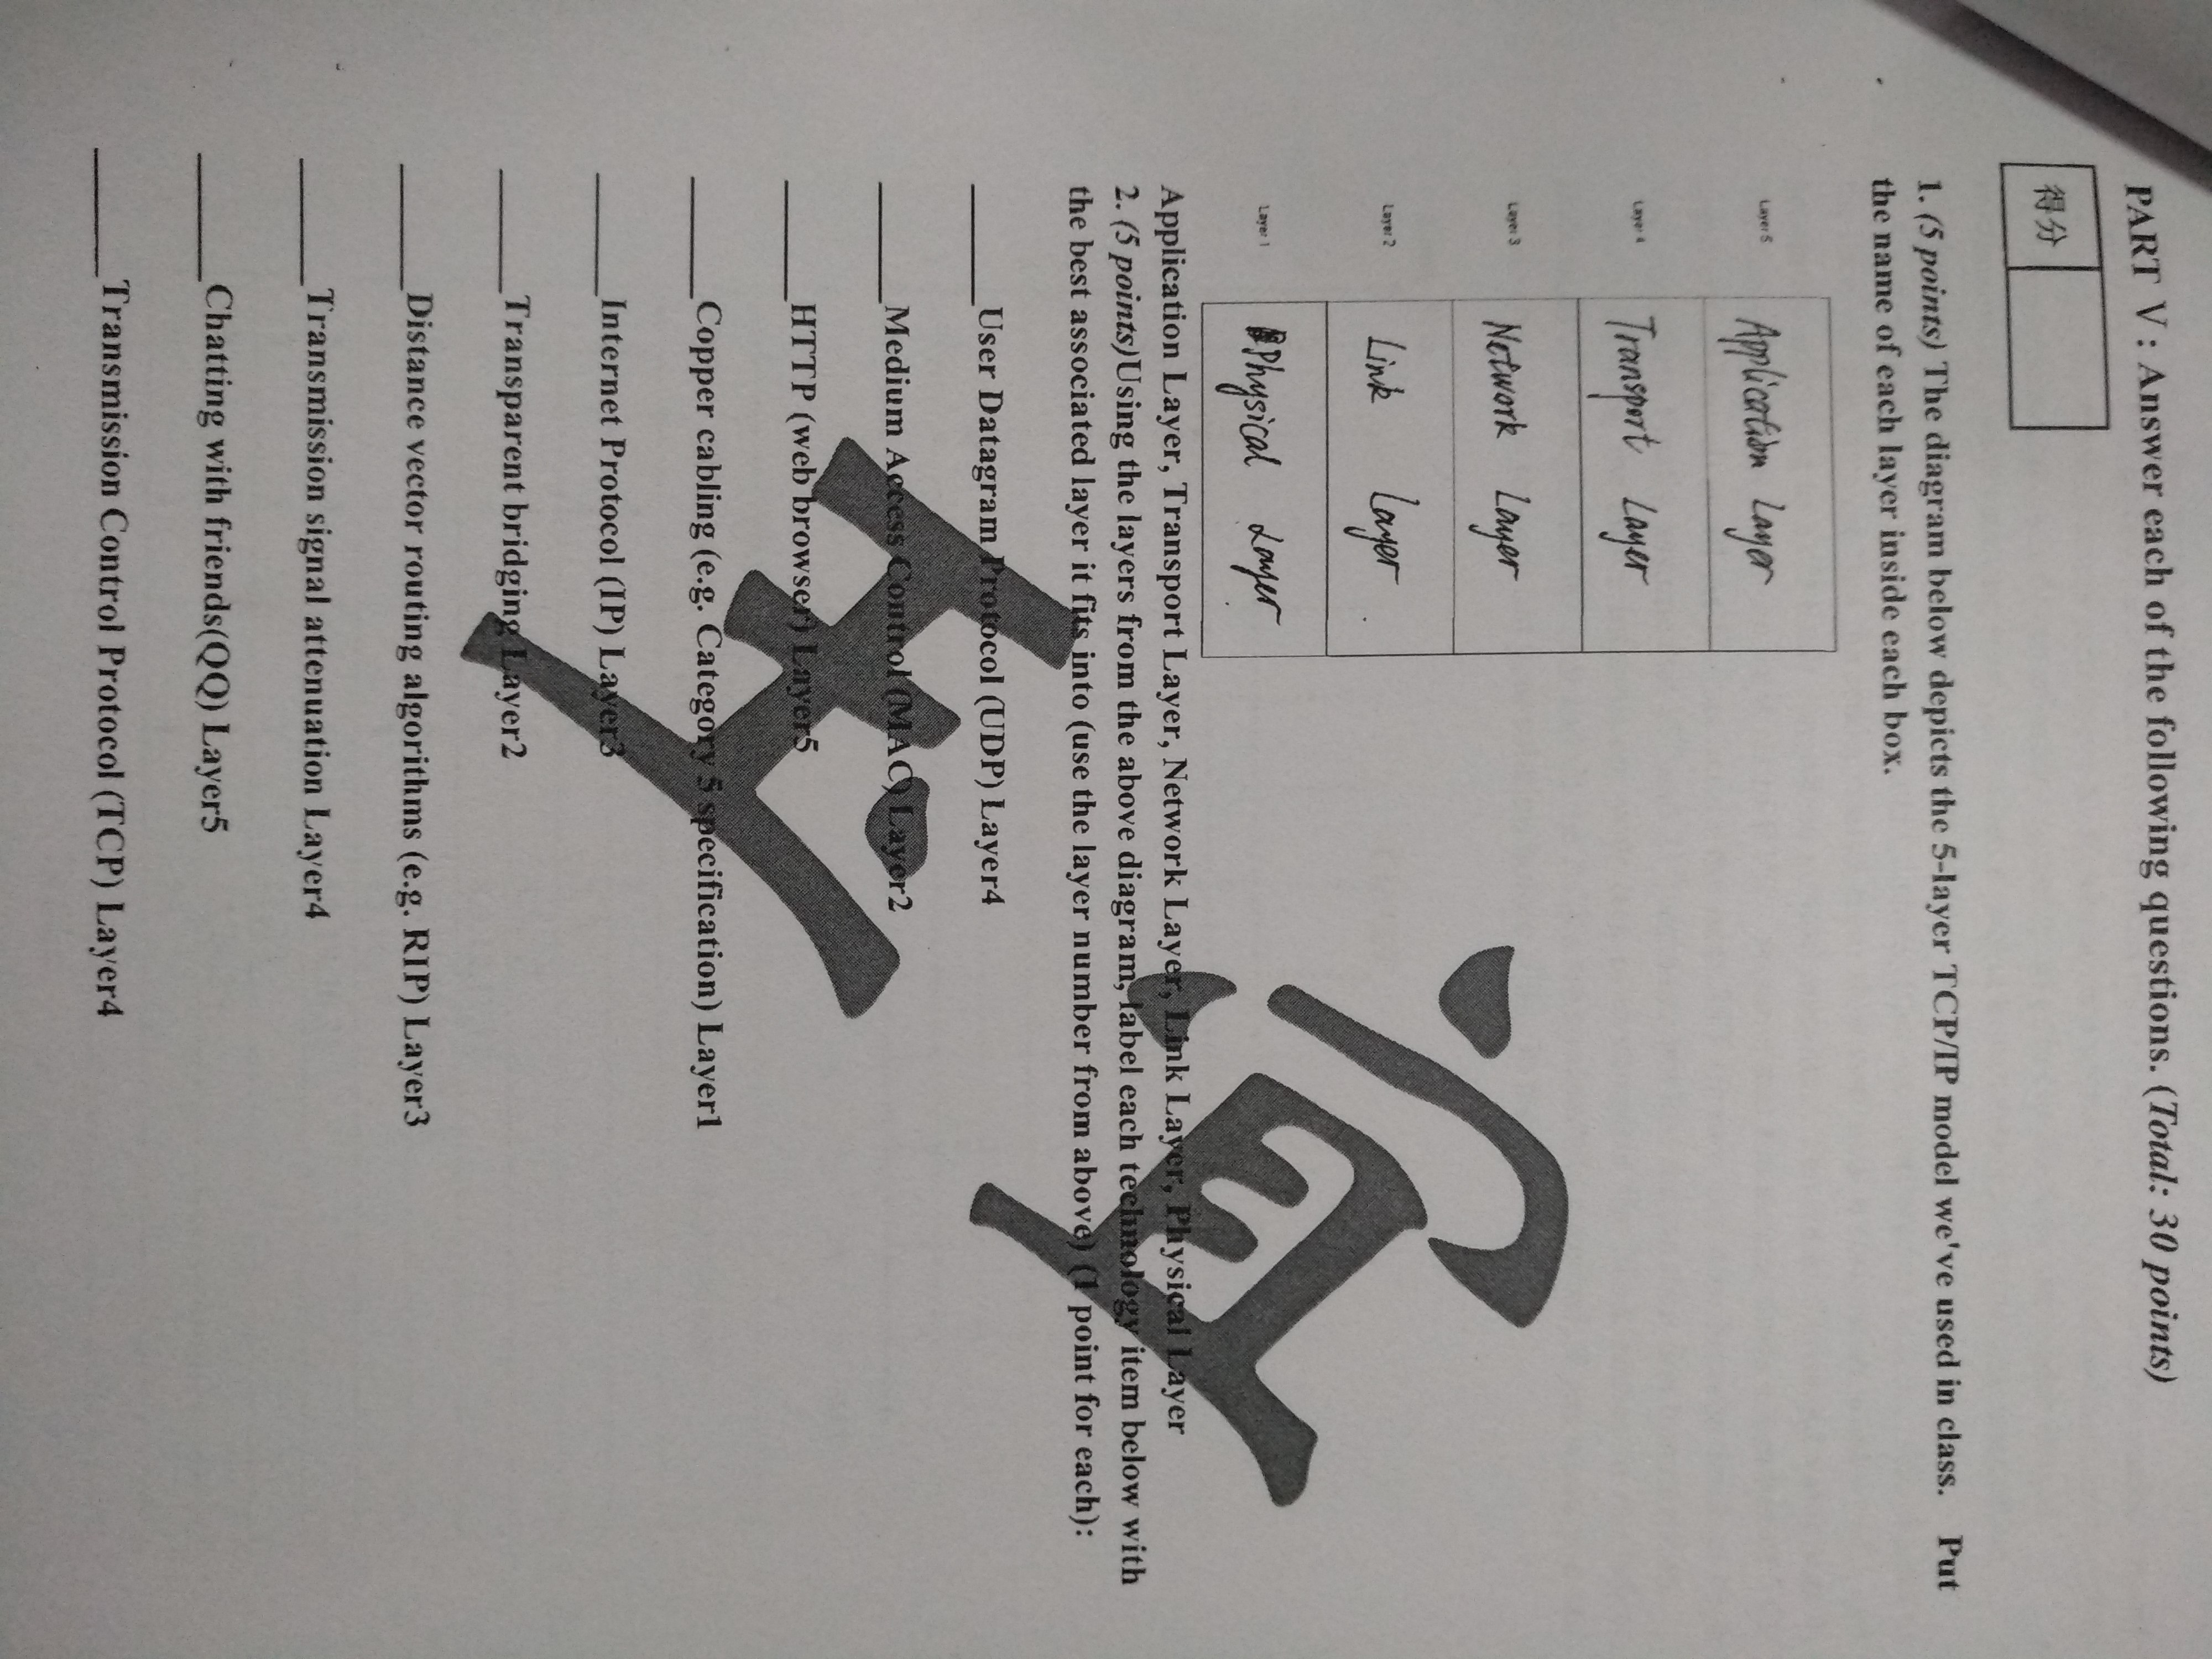 PART Ⅴ: Answer each of the following questions. (Total: 30 points)
得分
1. (5 points) The diagram below depicts the 5-layer TCP/IP model we've used in class. Put
the name of each layer inside each box.
Layer 5 Application Layer
Layer 4 Transport Layer
Layer 3 Network Layer
Layer 2 Link Layer
Layer 1 Physical Layer
Application Layer, Transport Layer, Network Layer, Link Layer, Physical Layer
2. (5 points)Using the layers from the above diagram, label each technology item below with
the best associated layer it fits into (use the layer number from above) (1 point for each):
______User Datagram Protocol (UDP) Layer4
______Medium Access Control (MAC) Layer2
______HTTP (web browser) Layer5
______Copper cabling (e.g. Category 5 specification) Layer1
______Internet Protocol (IP) Layer3
______Transparent bridging Layer2
______Distance vector routing algorithms (e.g. RIP) Layer3
______Transmission signal attenuation Layer4
______Chatting with friends(QQ) Layer5
______Transmission Control Protocol (TCP) Layer4